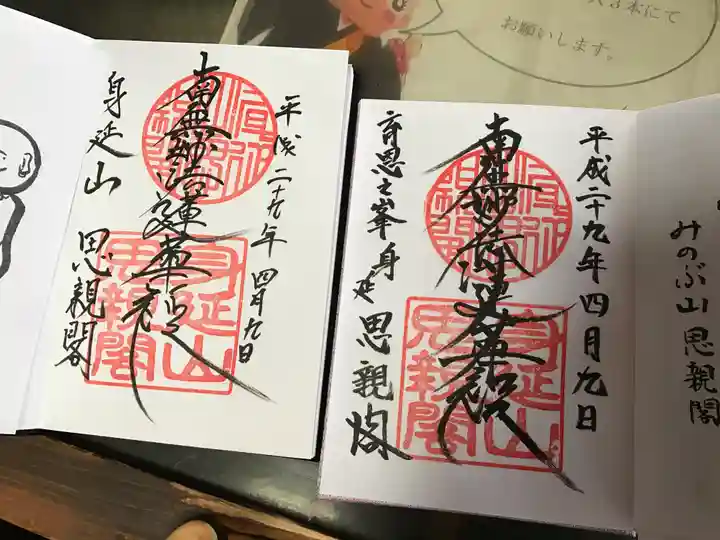 人3本にて
お願いします。
平成二十九年四月九日
南無妙法蓮華経
身延山 思親閣
身延山
思親閣
平成二十九年四月九日
南無妙法蓮華経
育恩之峯身延 思親閣
身延山
思親閣
みのぶ山思親閣